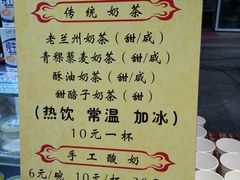 传统奶茶
老兰州奶茶（甜/咸）
青稞藜麦奶茶（甜/咸）
酥油奶茶（甜/咸）
甜醅子奶茶（甜）
（热饮 常温 加冰）
10元一杯
手工酸奶
6元/碗 10元/杯